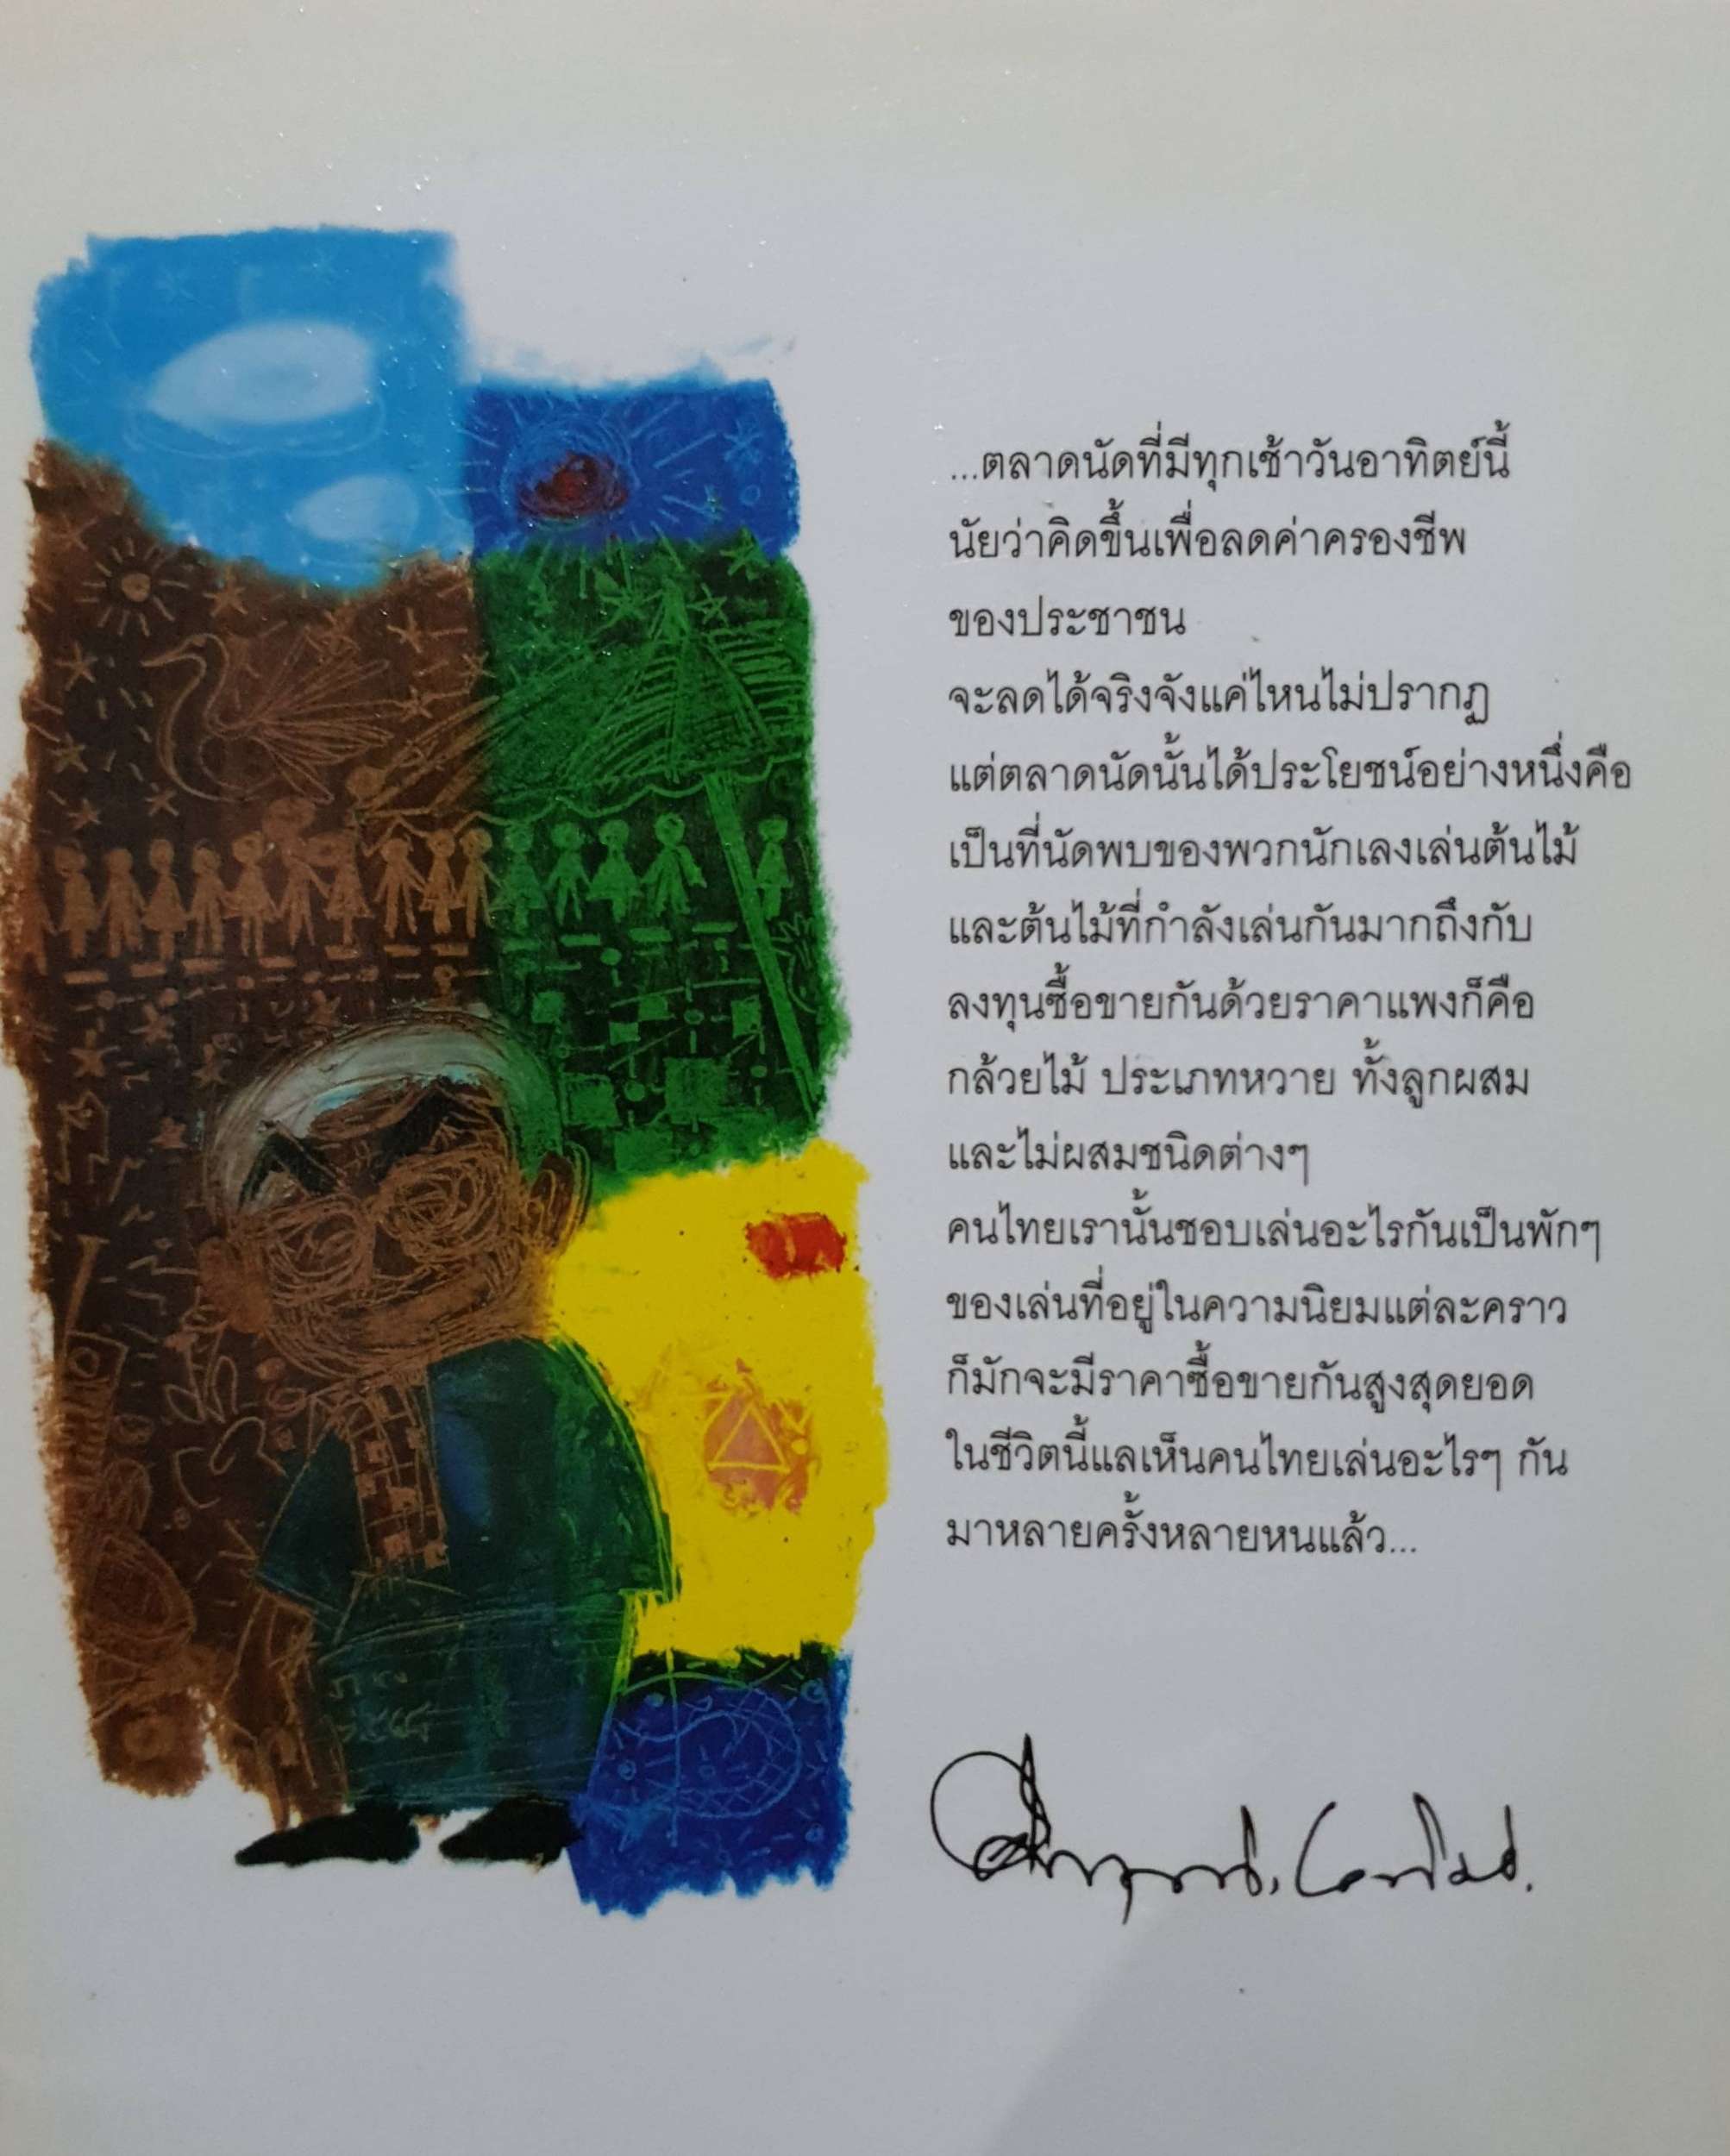 ...ตลาดนัดที่มีทุกเช้าวันอาทิตย์นี้
นัยว่าคิดขึ้นเพื่อลดค่าครองชีพ
ของประชาชน
จะลดได้จริงจังแค่ไหนไม่ปรากฏ
แต่ตลาดนัดนั้นได้ประโยชน์อย่างหนึ่งคือ
เป็นที่นัดพบของพวกนักเลงเล่นต้นไม้
และต้นไม้ที่กำลังเล่นกันมากถึงกับ
ลงทุนซื้อขายกันด้วยราคาแพงก็คือ
กล้วยไม้ ประเภทหวาย ทั้งลูกผสม
และไม่ผสมชนิดต่างๆ
คนไทยเรานั้นชอบเล่นอะไรกันเป็นพักๆ
ของเล่นที่อยู่ในความนิยมแต่ละคราว
ก็มักจะมีราคาซื้อขายกันสูงสุดยอด
ในชีวิตนี้แลเห็นคนไทยเล่นอะไรๆ กัน
มาหลายครั้งหลายหนแล้ว...